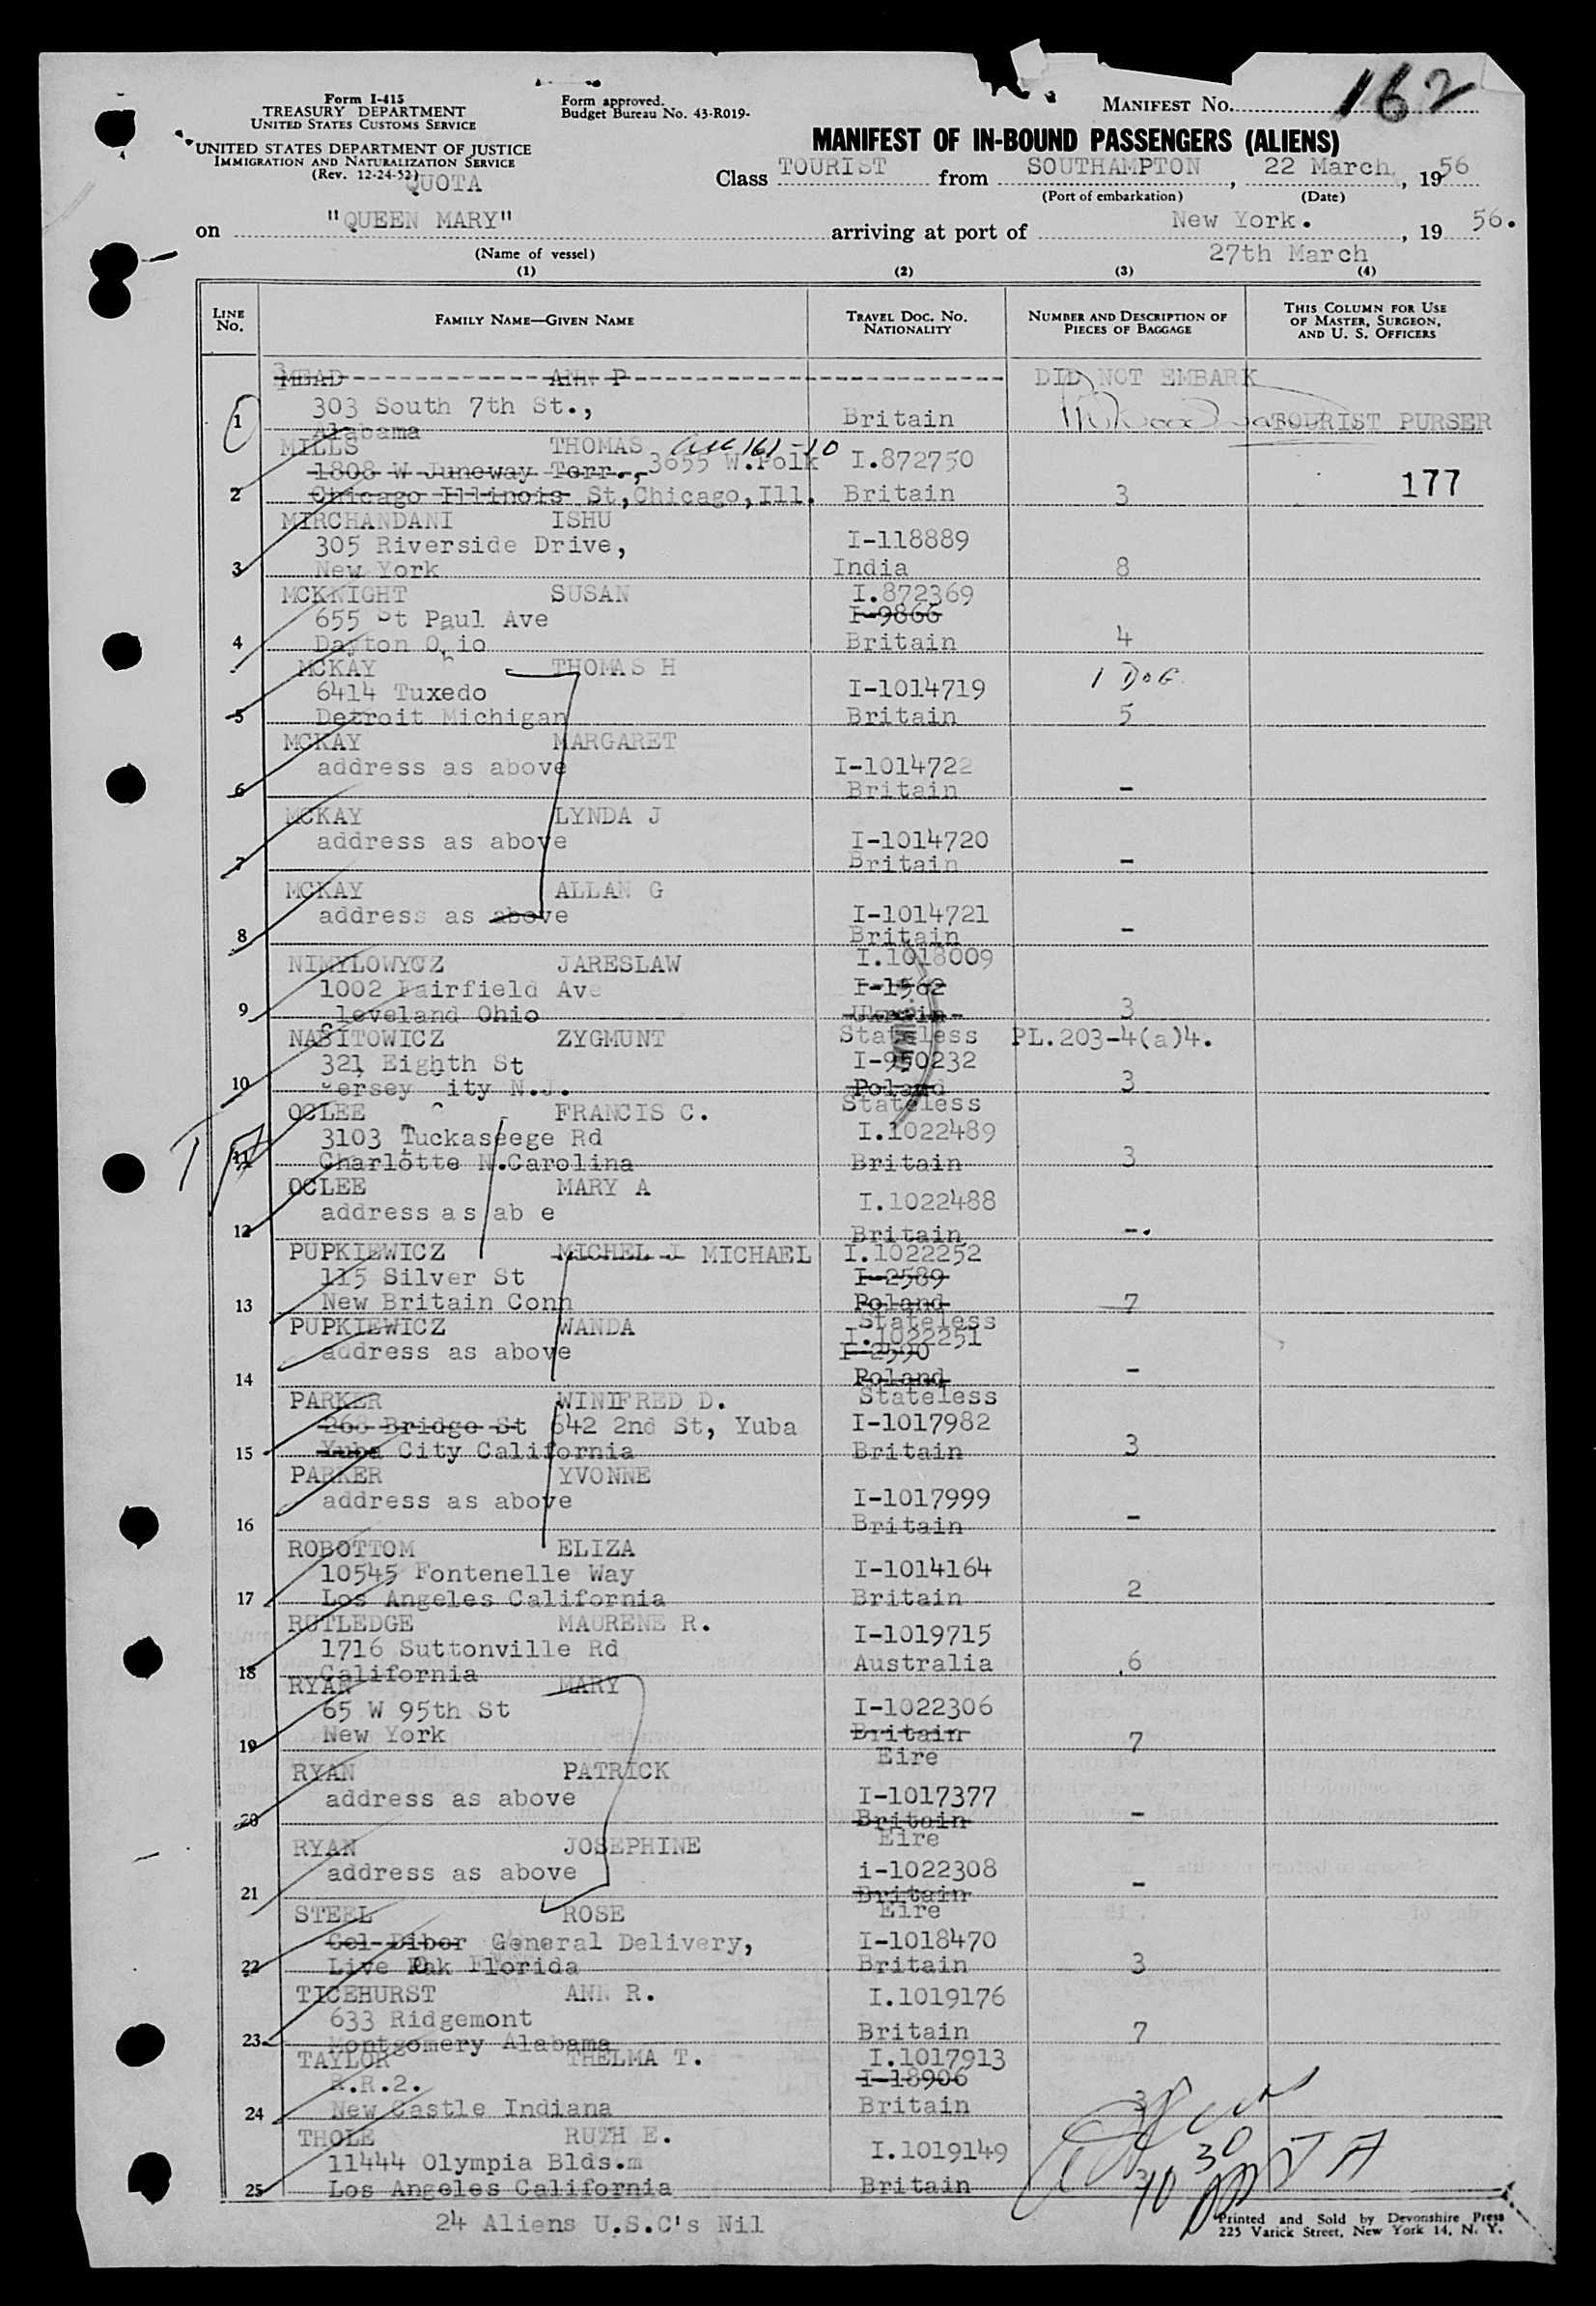 Form I-415
TREASURY DEPARTMENT
UNITED STATES CUSTOMS SERVICE
UNITED STATES DEPARTMENT OF JUSTICE
IMMIGRATION AND NATURALIZATION SERVICE
(Rev. 12-24-52)
QUOTA
Form approved.
Budget Bureau No. 43-R019-
MANIFEST No. 162
MANIFEST OF IN-BOUND PASSENGERS (ALIENS)
Class TOURIST from SOUTHAMPTON, 22 March, 1956
(Port of embarkation) (Date)
on "QUEEN MARY" arriving at port of New York. , 19 56.
(Name of vessel) 27th March
(1) (2) (3) (4)
LINE No. FAMILY NAME—GIVEN NAME TRAVEL DOC. No. NATIONALITY NUMBER AND DESCRIPTION OF PIECES OF BAGGAGE THIS COLUMN FOR USE OF MASTER, SURGEON, AND U. S. OFFICERS
MEAD ANN P DID NOT EMBARK
303 South 7th St.,
1 Alabama Britain TOURIST PURSER
MILLS THOMAS 161-10
1808 W Juneway Terr., 3655 W.Polk I.872750
2 Chicago Illinois St,Chicago,Ill. Britain 3 177
MIRCHANDANI ISHU
305 Riverside Drive, I-118889
3 New York India 8
MCKNIGHT SUSAN I.872369
655 St Paul Ave I-9866
4 Dayton Ohio Britain 4
MCKAY THOMAS H 1 DOG
6414 Tuxedo I-1014719
5 Detroit Michigan Britain 5
MCKAY MARGARET
address as above I-1014722
6 Britain -
MCKAY LYNDA J
address as above I-1014720
7 Britain -
MCKAY ALLAN G
address as above I-1014721
8 Britain -
NIMYLOWYCZ JARESLAW I.1018009
1002 Fairfield Ave I-1562
9 Cleveland Ohio Ukrain 3
Stateless PL.203-4(a)4.
NABITOWICZ ZYGMUNT
321 Eighth St I-950232
10 Jersey City N.J. Poland 3
Stateless
OCLEE FRANCIS C.
3103 Tuckaseege Rd I.1022489
11 Charlotte N.Carolina Britain 3
OCLEE MARY A
address as ab e I.1022488
12 Britain -.
PUPKIEWICZ MICHEL J MICHAEL I.1022252
115 Silver St I-2589
13 New Britain Conn Poland 7
Stateless
PUPKIEWICZ WANDA I.1022251
address as above I-2590
14 Poland -
Stateless
PARKER WINIFRED D.
268 Bridge St 642 2nd St, Yuba I-1017982
15 Yuba City California Britain 3
PARKER YVONNE
address as above I-1017999
16 Britain -
ROBOTTOM ELIZA
10545 Fontenelle Way I-1014164
17 Los Angeles California Britain 2
RUTLEDGE MAURENE R.
1716 Suttonville Rd I-1019715
18 California Australia 6
RYAN MARY
65 W 95th St I-1022306
19 New York Britain 7
Eire
RYAN PATRICK
address as above I-1017377
20 Britain -
Eire
RYAN JOSEPHINE
address as above i-1022308
21 Britain -
Eire
STEEL ROSE
General Delivery, I-1018470
22 Live Oak Florida Britain 3
TICEHURST ANN R.
633 Ridgemont I.1019176
23 Montgomery Alabama Britain 7
TAYLOR THELMA T. I.1017913
R.R.2. I-18906
24 New Castle Indiana Britain 3
THOLE RUTH E.
11444 Olympia Blds.m I.1019149
25 Los Angeles California Britain 3
24 Aliens U.S.C's Nil
Printed and Sold by Devonshire Press
225 Varick Street, New York 14, N. Y.